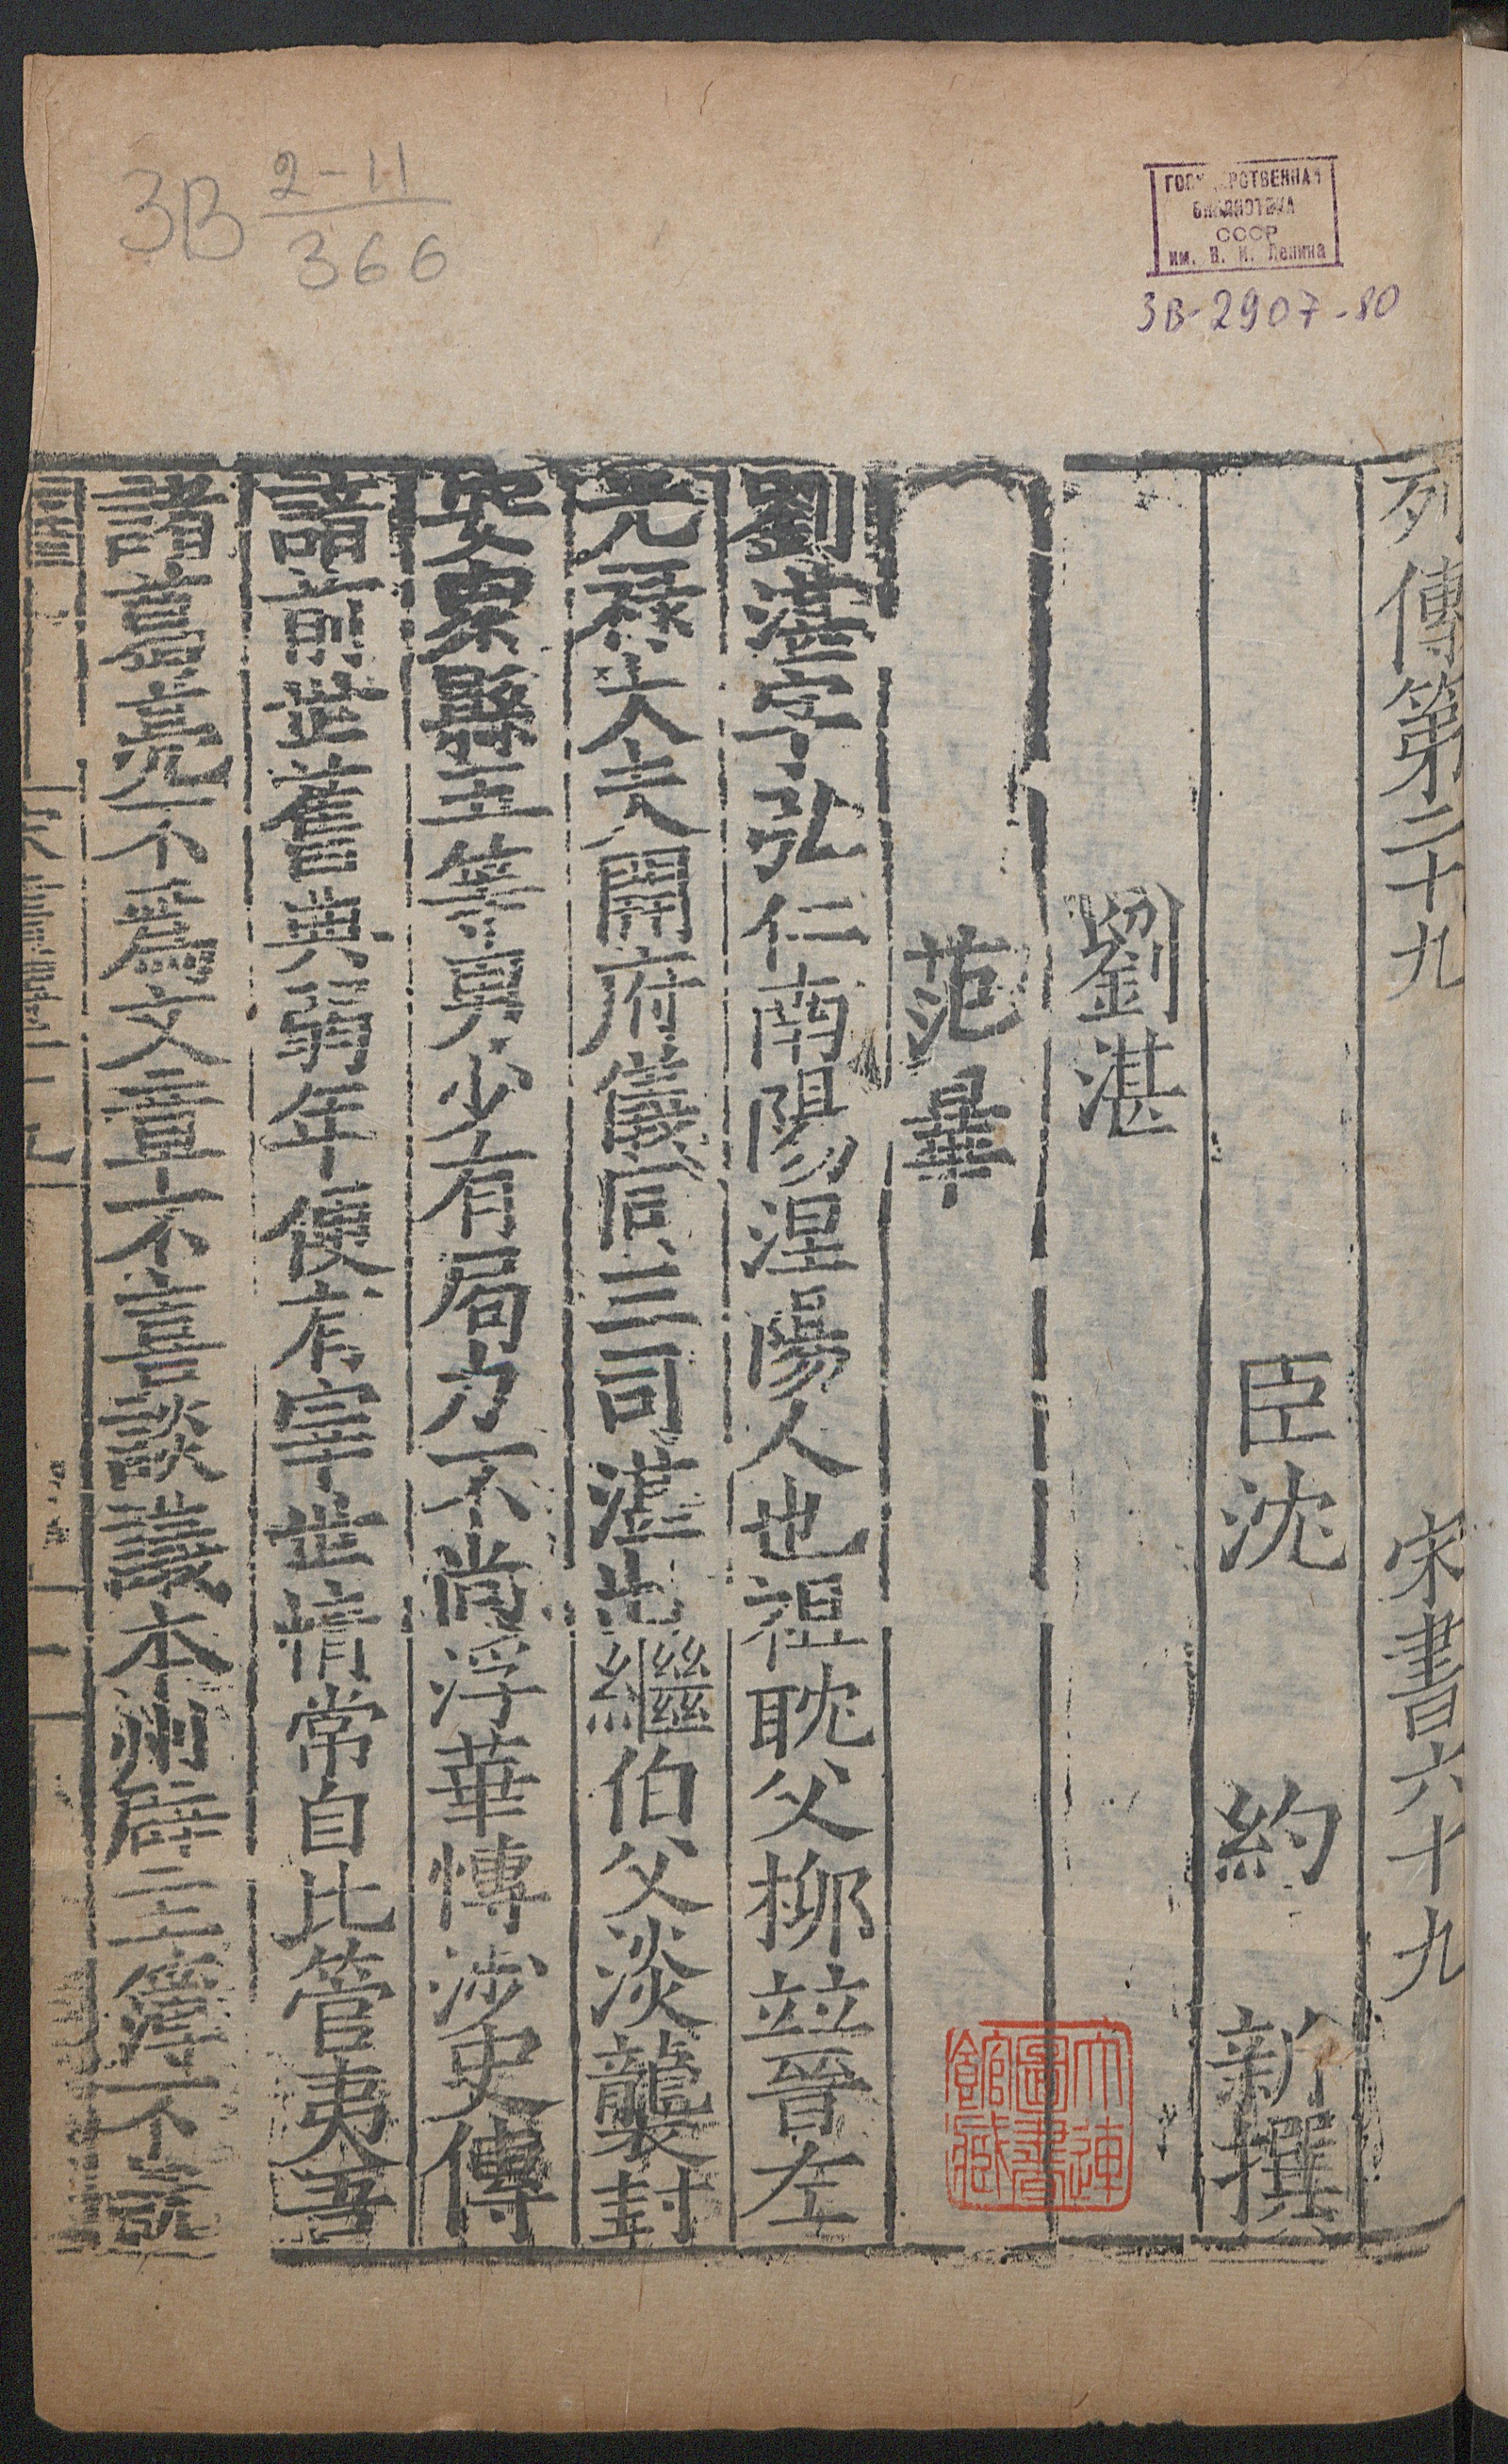 3В 2-11
366
ГОСУДАРСТВЕННАЯ
БИБЛИОТЕКА
СССР
им. В. И. Ленина
3В-2907-80
列傳第二十九 宋書六十九
臣沈 約 新撰
劉湛
范曄
劉湛字弘仁南陽涅陽人也祖耽父柳竝晉左
光禄大夫開府儀同三司湛出繼伯父淡襲封
安衆縣五等男少有局力不尚浮華愽涉史傳
諳前世舊典弱年便有宰世情常自比管夷吾
諸葛亮不爲文章不喜談議本州辟主簿不就
大連圖書館藏